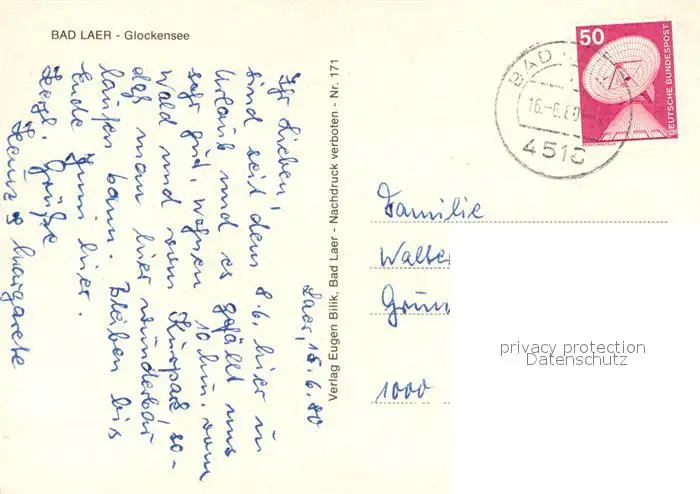 BAD LAER - Glockensee
Laer, 15.6.80
Ihr Lieben,
sind seit dem 8.6. hier in
Urlaub und es gefällt uns
sehr gut, wohnen 10 Min. vom
Wald und vom Kurpark, so-
daß man hier wunderbar
laufen kann. Bleiben bis
Ende Juni hier.
Herzl. Grüße
Heinz & Margarete
Verlag Eugen Bilik, Bad Laer - Nachdruck verboten - Nr. 171
50
DEUTSCHE BUNDESPOST
BAD
16.-6.80
4518
Familie
Walter
1000
privacy protection
Datenschutz